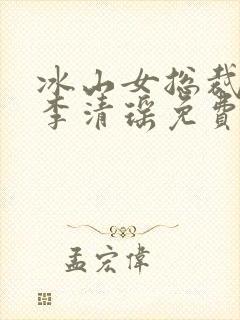 冰山女总裁
李清瑶免費
孟宏偉